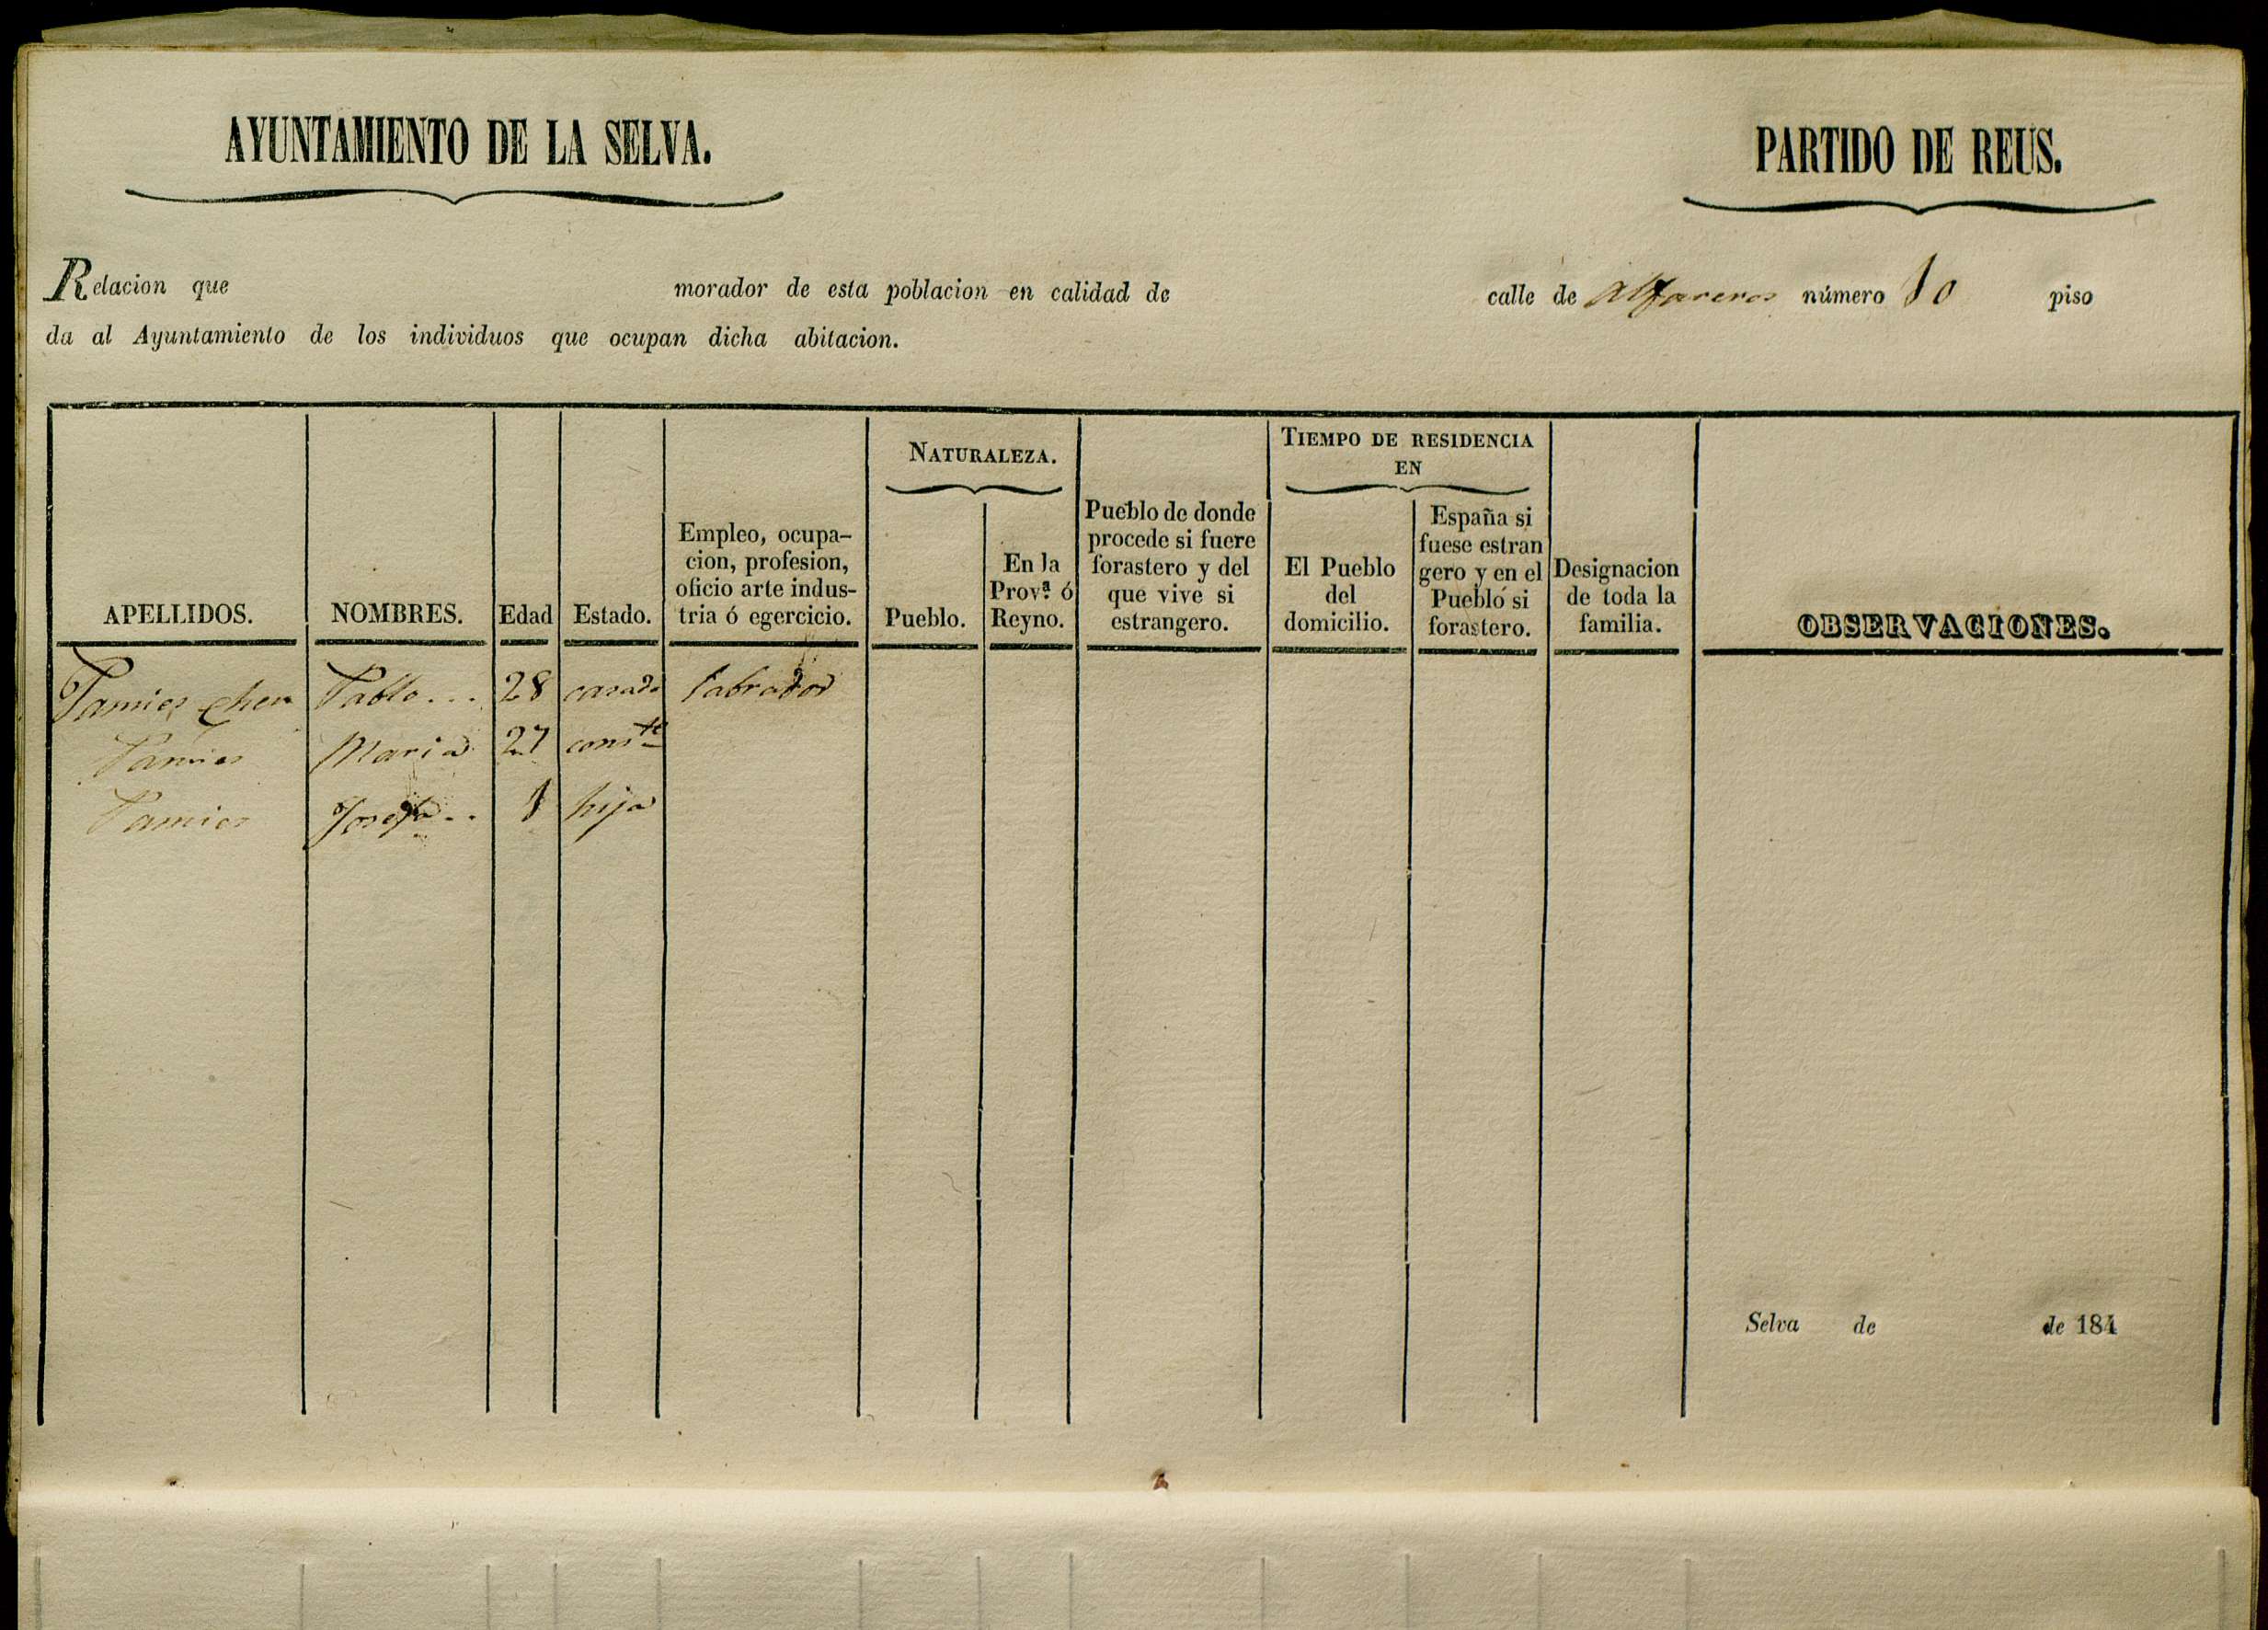 AYUNTAMIENTO DE LA SELVA.
PARTIDO DE REUS.
Relacion que morador de esta poblacion en calidad de calle de Alfareros número 10 piso
da al Ayuntamiento de los individuos que ocupan dicha abitacion.
APELLIDOS.
NOMBRES.
Edad
Estado.
Empleo, ocupa-
cion, profesion,
oficio arte indus-
tria ó egercicio.
NATURALEZA.
Pueblo.
En la
Prov.ª ó
Reyno.
Pueblo de donde
procede si fuere
forastero y del
que vive si
estrangero.
TIEMPO DE RESIDENCIA
EN
El Pueblo
del
domicilio.
España si
fuese estran
gero y en el
Pueblo si
forastero.
Designacion
de toda la
familia.
OBSERVACIONES.
Tamies Pablo... 28 casado labrador
Tamies Maria 27 cons.te
Tamies Josefa.. 1 hija
Selva de de 184